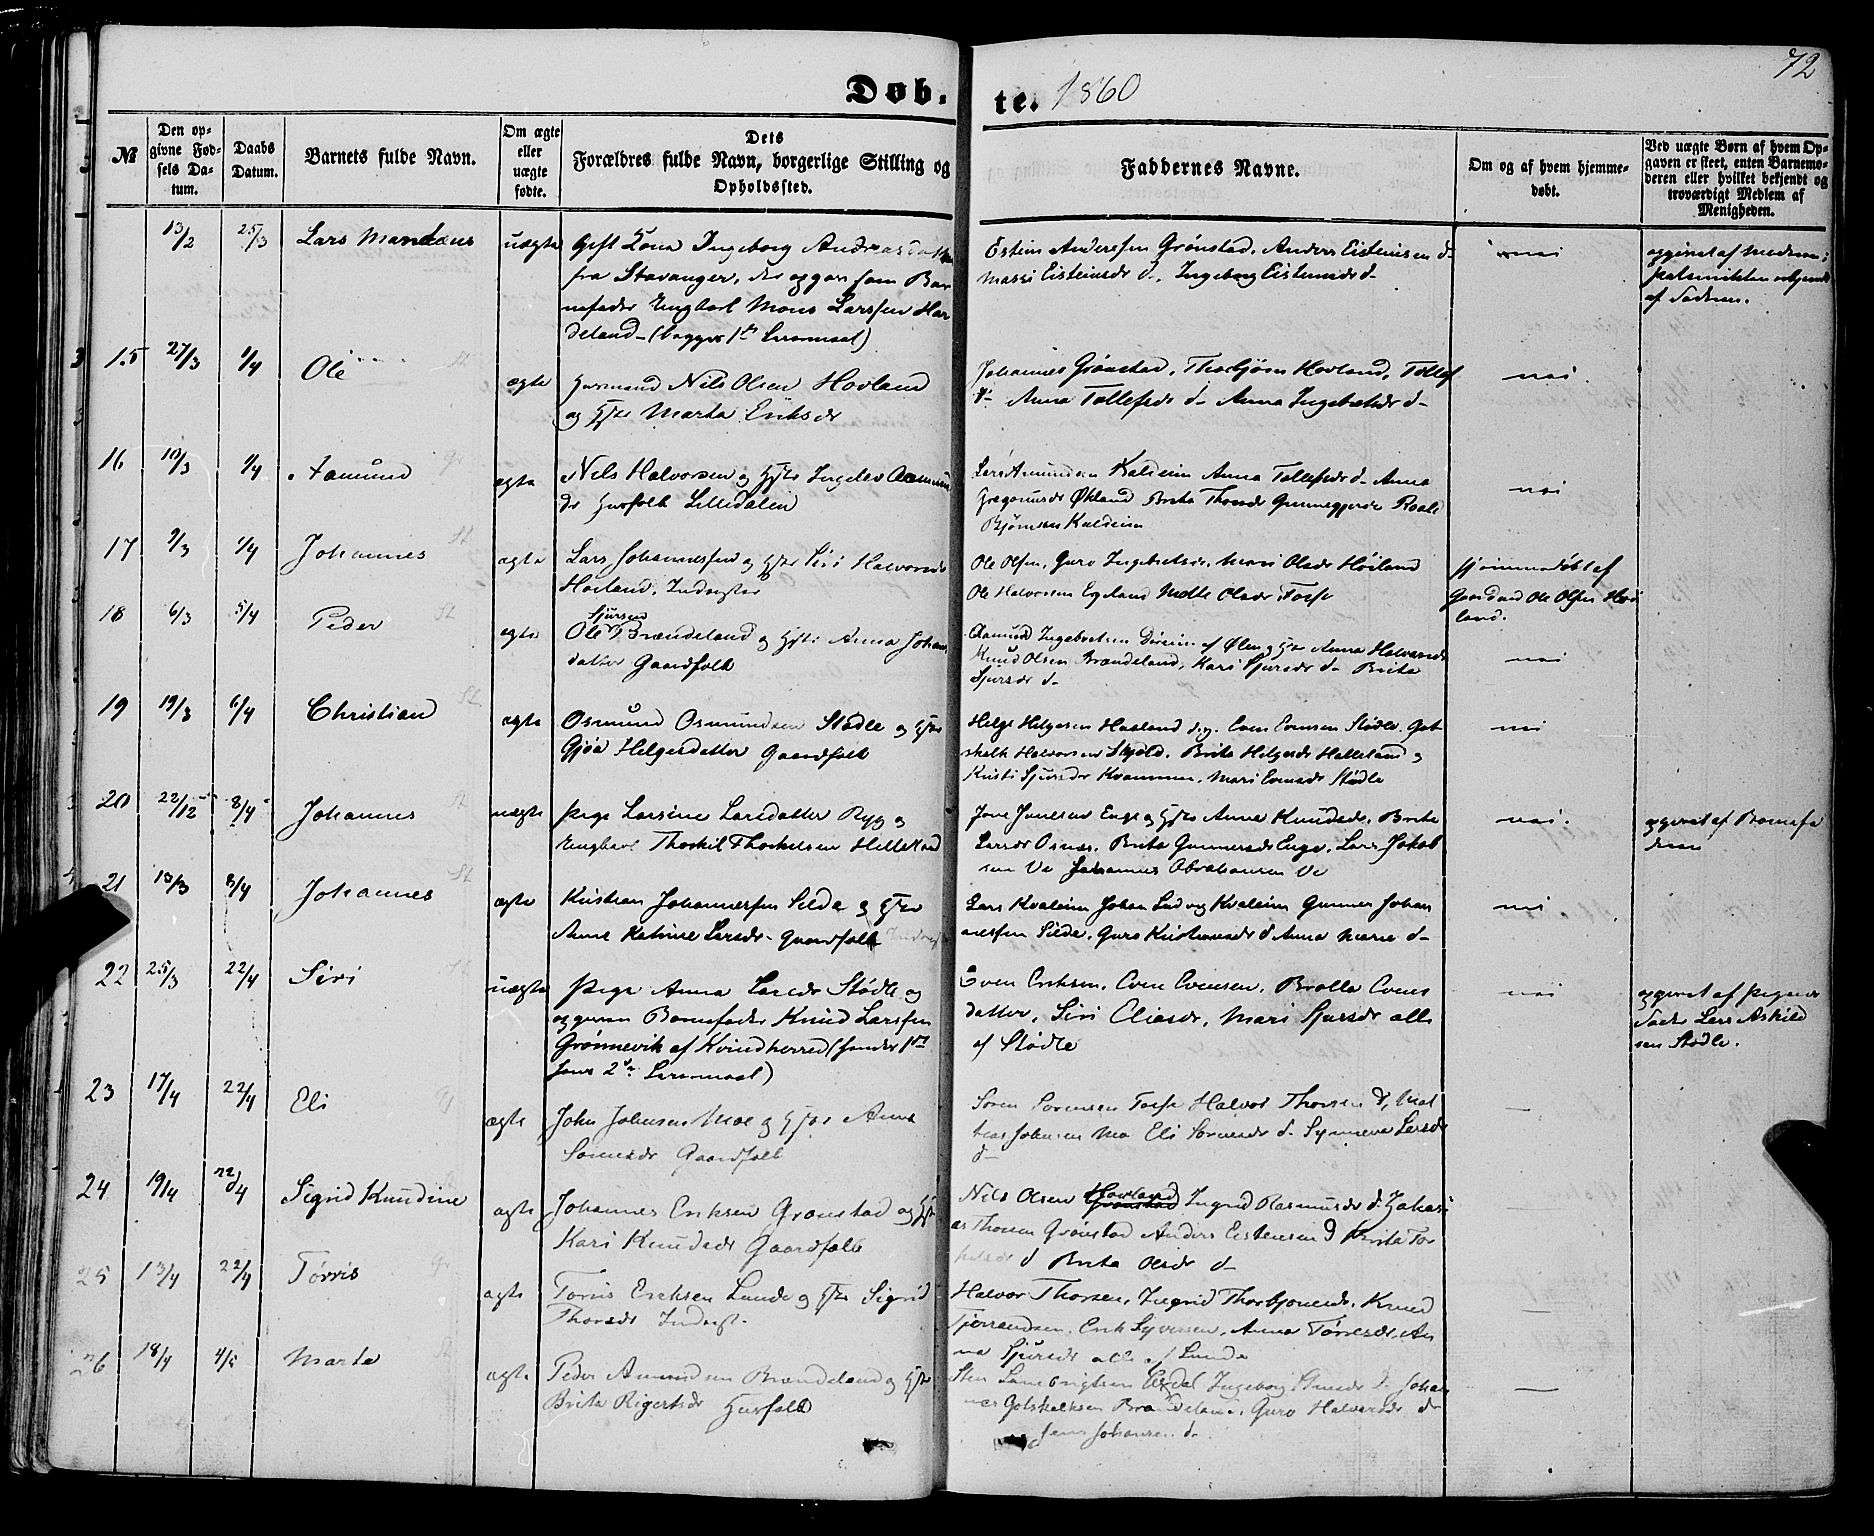 72
Døb. te. 1860
№
Den opgivne Fødsels Datum.
Daabs Datum.
Barnets fulde Navn.
Om ægte eller uægte fødte.
Dets Forældres fulde Navn, borgerlige Stilling og Opholdssted.
Faddernes Navne.
Om og af hvem hjemmedøbt.
Ved uægte Børn af hvem Opgaven er skeet, enten Barnemoderen eller hvilket bekjendt og troværdigt Medlem af Menigheden.
13/2 25/3 Lars Mandius uægte Gift Kona Ingeborg Andreasdatter
fra Stavanger, der opgav som Bar
nefader Ungkarl Mons Larssen Hav
deland - (begges 1ste Leiermaal)
Estein Anderssen Grønstad, Anders Eisteinsen d-
Massi Eisteinsdr d-, Ingeborg Eisteinsdr d-
nei
opgivet af Moderen i
af Faderen.
15 27/3 1/4 Ole ægte Huusmand Nils Olsen Hovland
og Hstr Marta Eriksdr
Johannes Grønstad, Thorbjørn Hovland, Tollef
d- Anna Tollefsdr d- Anna Ingebretsdr d-
nei.
16 10/3 1/4 Aamund ægte Nils Halvorsen og Hstr Ingelev Aamunds
dr Husfolk Lilledalen
Lars Amundsen Kaldeim Anna Tollefsdr d- Anna
Gregoriusdr Økland Brita Thorsdr Gunnegjerde Roald
Bjørnsen Kaldeim
nei
17 9/3 1/4 Johannes St ægte Lars Johannessen og Hstr Siri Halvorsdr
Høiland, Inderster
Ole Olsen, Guro Ingebretsdr, Mari Olsdr Høiland
Ole Halvorsen Egeland Mette Olsdr Tosse
hjemmedøbt af
Gaardmd Ole Olsen Høi
land.
18 6/3 5/4 Peder St ægte Ole Sjursen Brændeland og Hstr Anna Johans
datter Gaardfolk
Aamund Ingebretsen Dørheim af Ølen og Hstr Anna Halvorsdr
Knud Olsen Brændeland, Kari Sjursdr d- Brita
Sjursdr d-
nei
19 19/3 6/4 Christian St ægte Osmund Osmundsen Stødle og Hstr
Gjøa Helgesdatter Gaardfolk
Helge Helgesen Haaland Even Evensen Stødle, Got
skalk Halvorsen Skjold, Brita Helgesdr Helleland og
Kristi Sjursdr Kvammen, Mari Evensdr Stødle
nei
20 22/12 8/4 Johannes St uægte Pige Larsine Larsdatter Ryg og
Ungkarl Thorkil Thorkelsen Helleland
Jone Jonesen Enge og Hstr Anna Knudsdr, Brita
Larsdr Osnes, Brita Gunnarsdr Enge, Lars Jakob
sen Ve Johannes Abrahamsen Ve
nei.
opgivet af Barnefa
deren
21 13/3 8/4 Johannes St ægte Kristian Johannessen Silde og Hstr
Anne Katrine Larsdr - Gaardfolk
Lars Kvaleim Johan Ludvig Kvaleim Gunnar Johan
nessen Silde, Guro Kristiansdr d Anna Marie d-
nei
22 25/3 22/4 Siri St uægte Pige Anna Larsdr Stødle og
opgiven Barnefader Knud Larssen
Grønnevik af Kvindherred (hendes 1ste
hans 2de Leiermaal)
Even Eriksen, Even Evensen, Brolla Evens
datter, Siri Eliasdr, Mari Sjursdr alle
af Stødle
nei
opgivet af Pigens
Fader Lars Askild
sen Stødle.
23 17/4 22/4 Eli ægte John Johnsen Moe og Hstr Anna
Sørensdr Gaardfolk
Søren Sørensen Tosse Halvor Thorsen d, Mat
hias Johnsen Mo Eli Sørensdr d- Synneva Larsdr
d-
24 19/4 22/4 Sigrid Knudine ægte Johannes Eriksen Grønstad og Hstr
Kari Knudsdr Gaardfolk
Nils Olsen Hovland Ingrid Rasmusdr d. Zakari
as Thorsen Grønstad Anders Eistensen d Brita Tor
kelsdr d Brita Olsdr d-
25 13/4 22/4 Tørris Gr ægte Tørris Eriksen Lunde og Hstr Sigrid
Thorsdr Inderst.
Halvor Thorsen, Ingrid Thorbjørnsdr, Knud
Tjerrandsen, Erik Syversen, Anna Tørresdr, An
na Sjursdr alle af Lunde
26 18/4 4/5 Marta St ægte Peder Amundsen Brændeland og Hstr
Brita Rigertsdr Husfolk
Sten Lambrigtsen Ingeborg Stensdr d. Johan
nes Gotskalksen Brændeland, Guro Halvorsdr d-
Jens Johansen d-